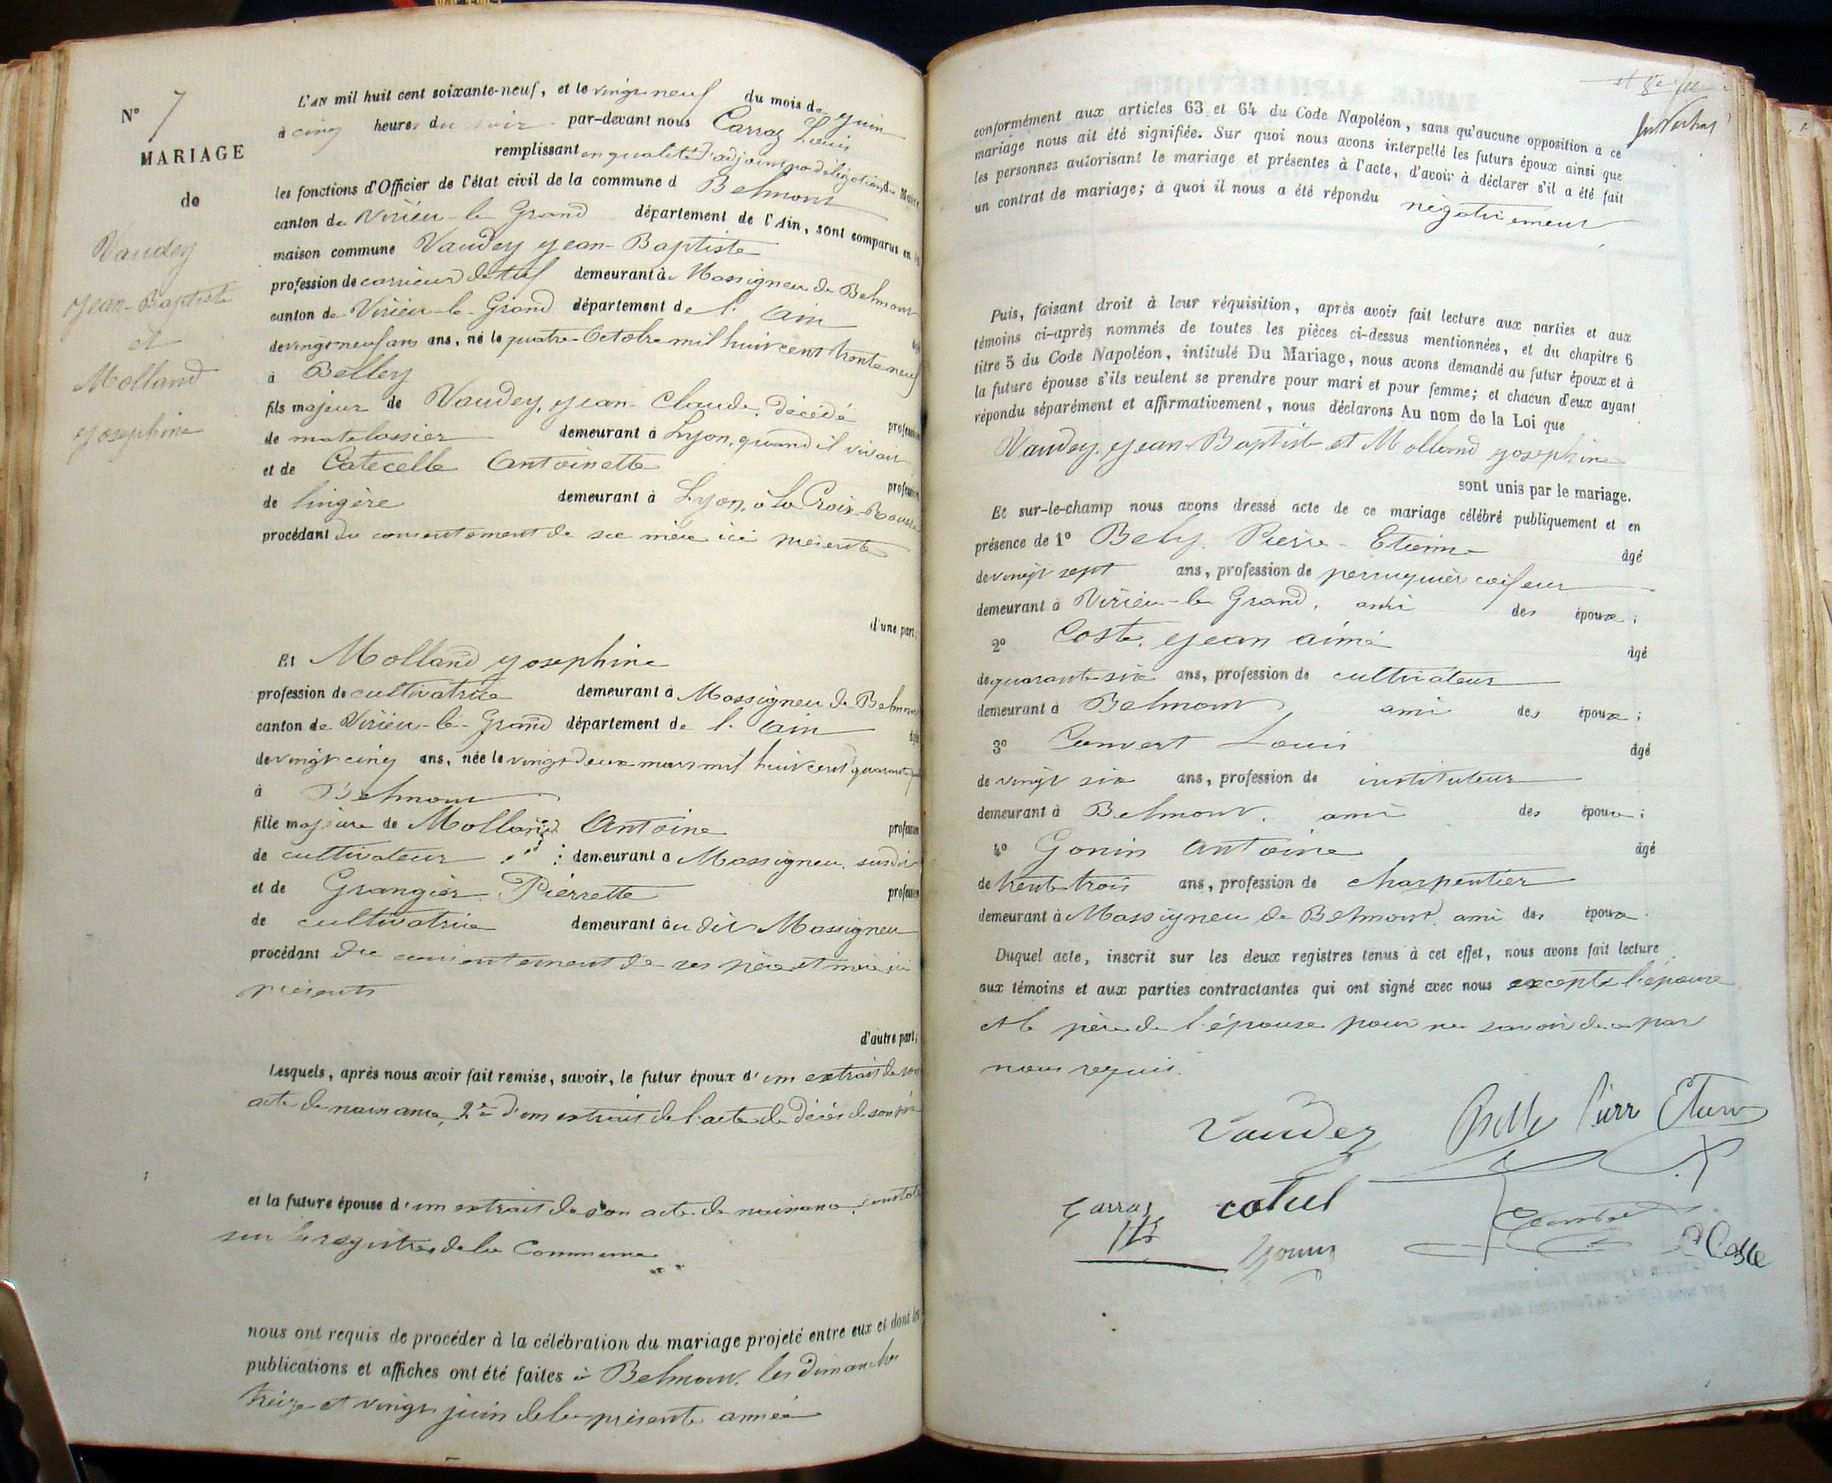 N° 7
MARIAGE
de
Vaudey
Jean-Baptiste
et
Molland
Josephine
L'AN mil huit cent soixante-neuf, et le vingt neuf du mois de Juin
à cinq heures du soir par-devant nous Carraz Louis
remplissant en qualité d'adjoint par délégation du Maire
les fonctions d'Officier de l'état civil de la commune d Belmont
canton de Virieu-le-Grand département de l'Ain, sont comparus en la
maison commune Vaudey Jean-Baptiste
profession de carrieur de tuf demeurant à Massigneu de Belmont
canton de Virieu-le-Grand département de l'Ain âgé
de vingt neuf ans ans, né le quatre Octobre mil huit cent trente neuf
à Belley
fils majeur de Vaudey, Jean-Claude, décédé profession
de matelassier demeurant à Lyon, quand il vivait
et de Catecelle Antoinette profession
de lingère demeurant à Lyon, à la Croix-Rousse
procédant du consentement de sa mère ici présente
d'une part;
Et Molland Josephine
profession de cultivatrice demeurant à Massigneu de Belmont
canton de Virieu-le-Grand département de l'Ain âgé
de vingt cinq ans, née le vingt deux mars mil huit cent quarante
à Belmont
fille majeure de Molland Antoine profession
de cultivateur demeurant à Massigneu susdit
et de Grangier Pierrette profession
de cultivatrice demeurant au dit Massigneu
procédant du consentement de ses père et mère ici
présents
d'autre part;
Lesquels, après nous avoir fait remise, savoir, le futur époux d'un extrait de son
acte de naissance, 2° d'un extrait de l'acte de décès de son père
et la future épouse d'un extrait de son acte de naissance, constaté
sur les registres de la Commune
nous ont requis de procéder à la célébration du mariage projeté entre eux et dont les
publications et affiches ont été faites à Belmont, les dimanches
treize et vingt juin de la présente année
conformément aux articles 63 et 64 du Code Napoléon, sans qu'aucune opposition à ce
mariage nous ait été signifiée. Sur quoi nous avons interpellé les futurs époux ainsi que
les personnes autorisant le mariage et présentes à l'acte, d'avoir à déclarer s'il a été fait
un contrat de mariage; à quoi il nous a été répondu négativement
Puis, faisant droit à leur réquisition, après avoir fait lecture aux parties et aux
témoins ci-après nommés de toutes les pièces ci-dessus mentionnées, et du chapitre 6
titre 5 du Code Napoléon, intitulé Du Mariage, nous avons demandé au futur époux et à
la future épouse s'ils veulent se prendre pour mari et pour femme; et chacun d'eux ayant
répondu séparément et affirmativement, nous déclarons Au nom de la Loi que
Vaudey, Jean-Baptiste et Molland Josephine
sont unis par le mariage.
Et sur-le-champ nous avons dressé acte de ce mariage célébré publiquement et en
présence de 1° Bely Pierre-Etienne âgé
de vingt sept ans, profession de perruquier coifeur
demeurant à Virieu-le-Grand, ami des époux;
2° Coste, Jean aimé âgé
de quarante six ans, profession de cultivateur
demeurant à Belmont ami des époux;
3° Convert Louis âgé
de vingt six ans, profession de instituteur
demeurant à Belmont, ami des époux;
4° Gonin Antoine âgé
de trente trois ans, profession de charpentier
demeurant à Massigneu de Belmont ami des époux.
Duquel acte, inscrit sur les deux registres tenus à cet effet, nous avons fait lecture
aux témoins et aux parties contractantes qui ont signé avec nous excepté l'épouse
et le père de l'épouse pour ne savoir de ce par
nous requis.
Vaudey
Carraz
Gonin
Coste